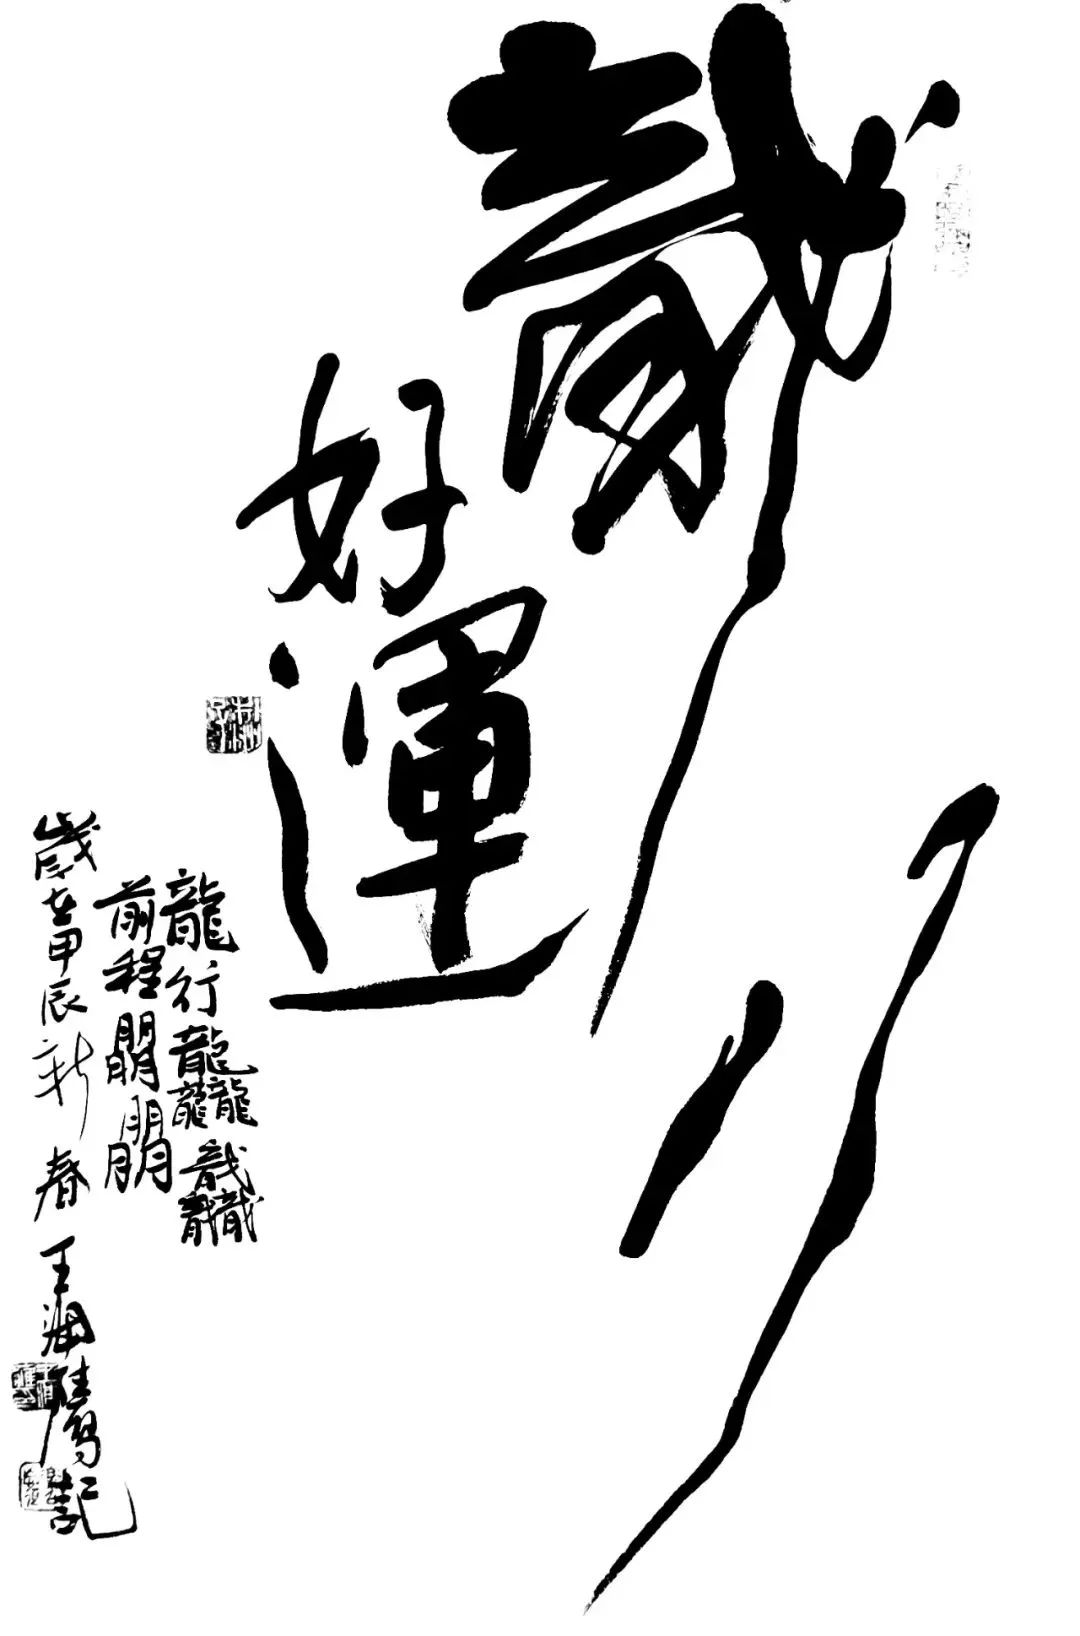 龍行
好運
龍行龘龘
前程朤朤
歲在甲辰新春 王海鷹記